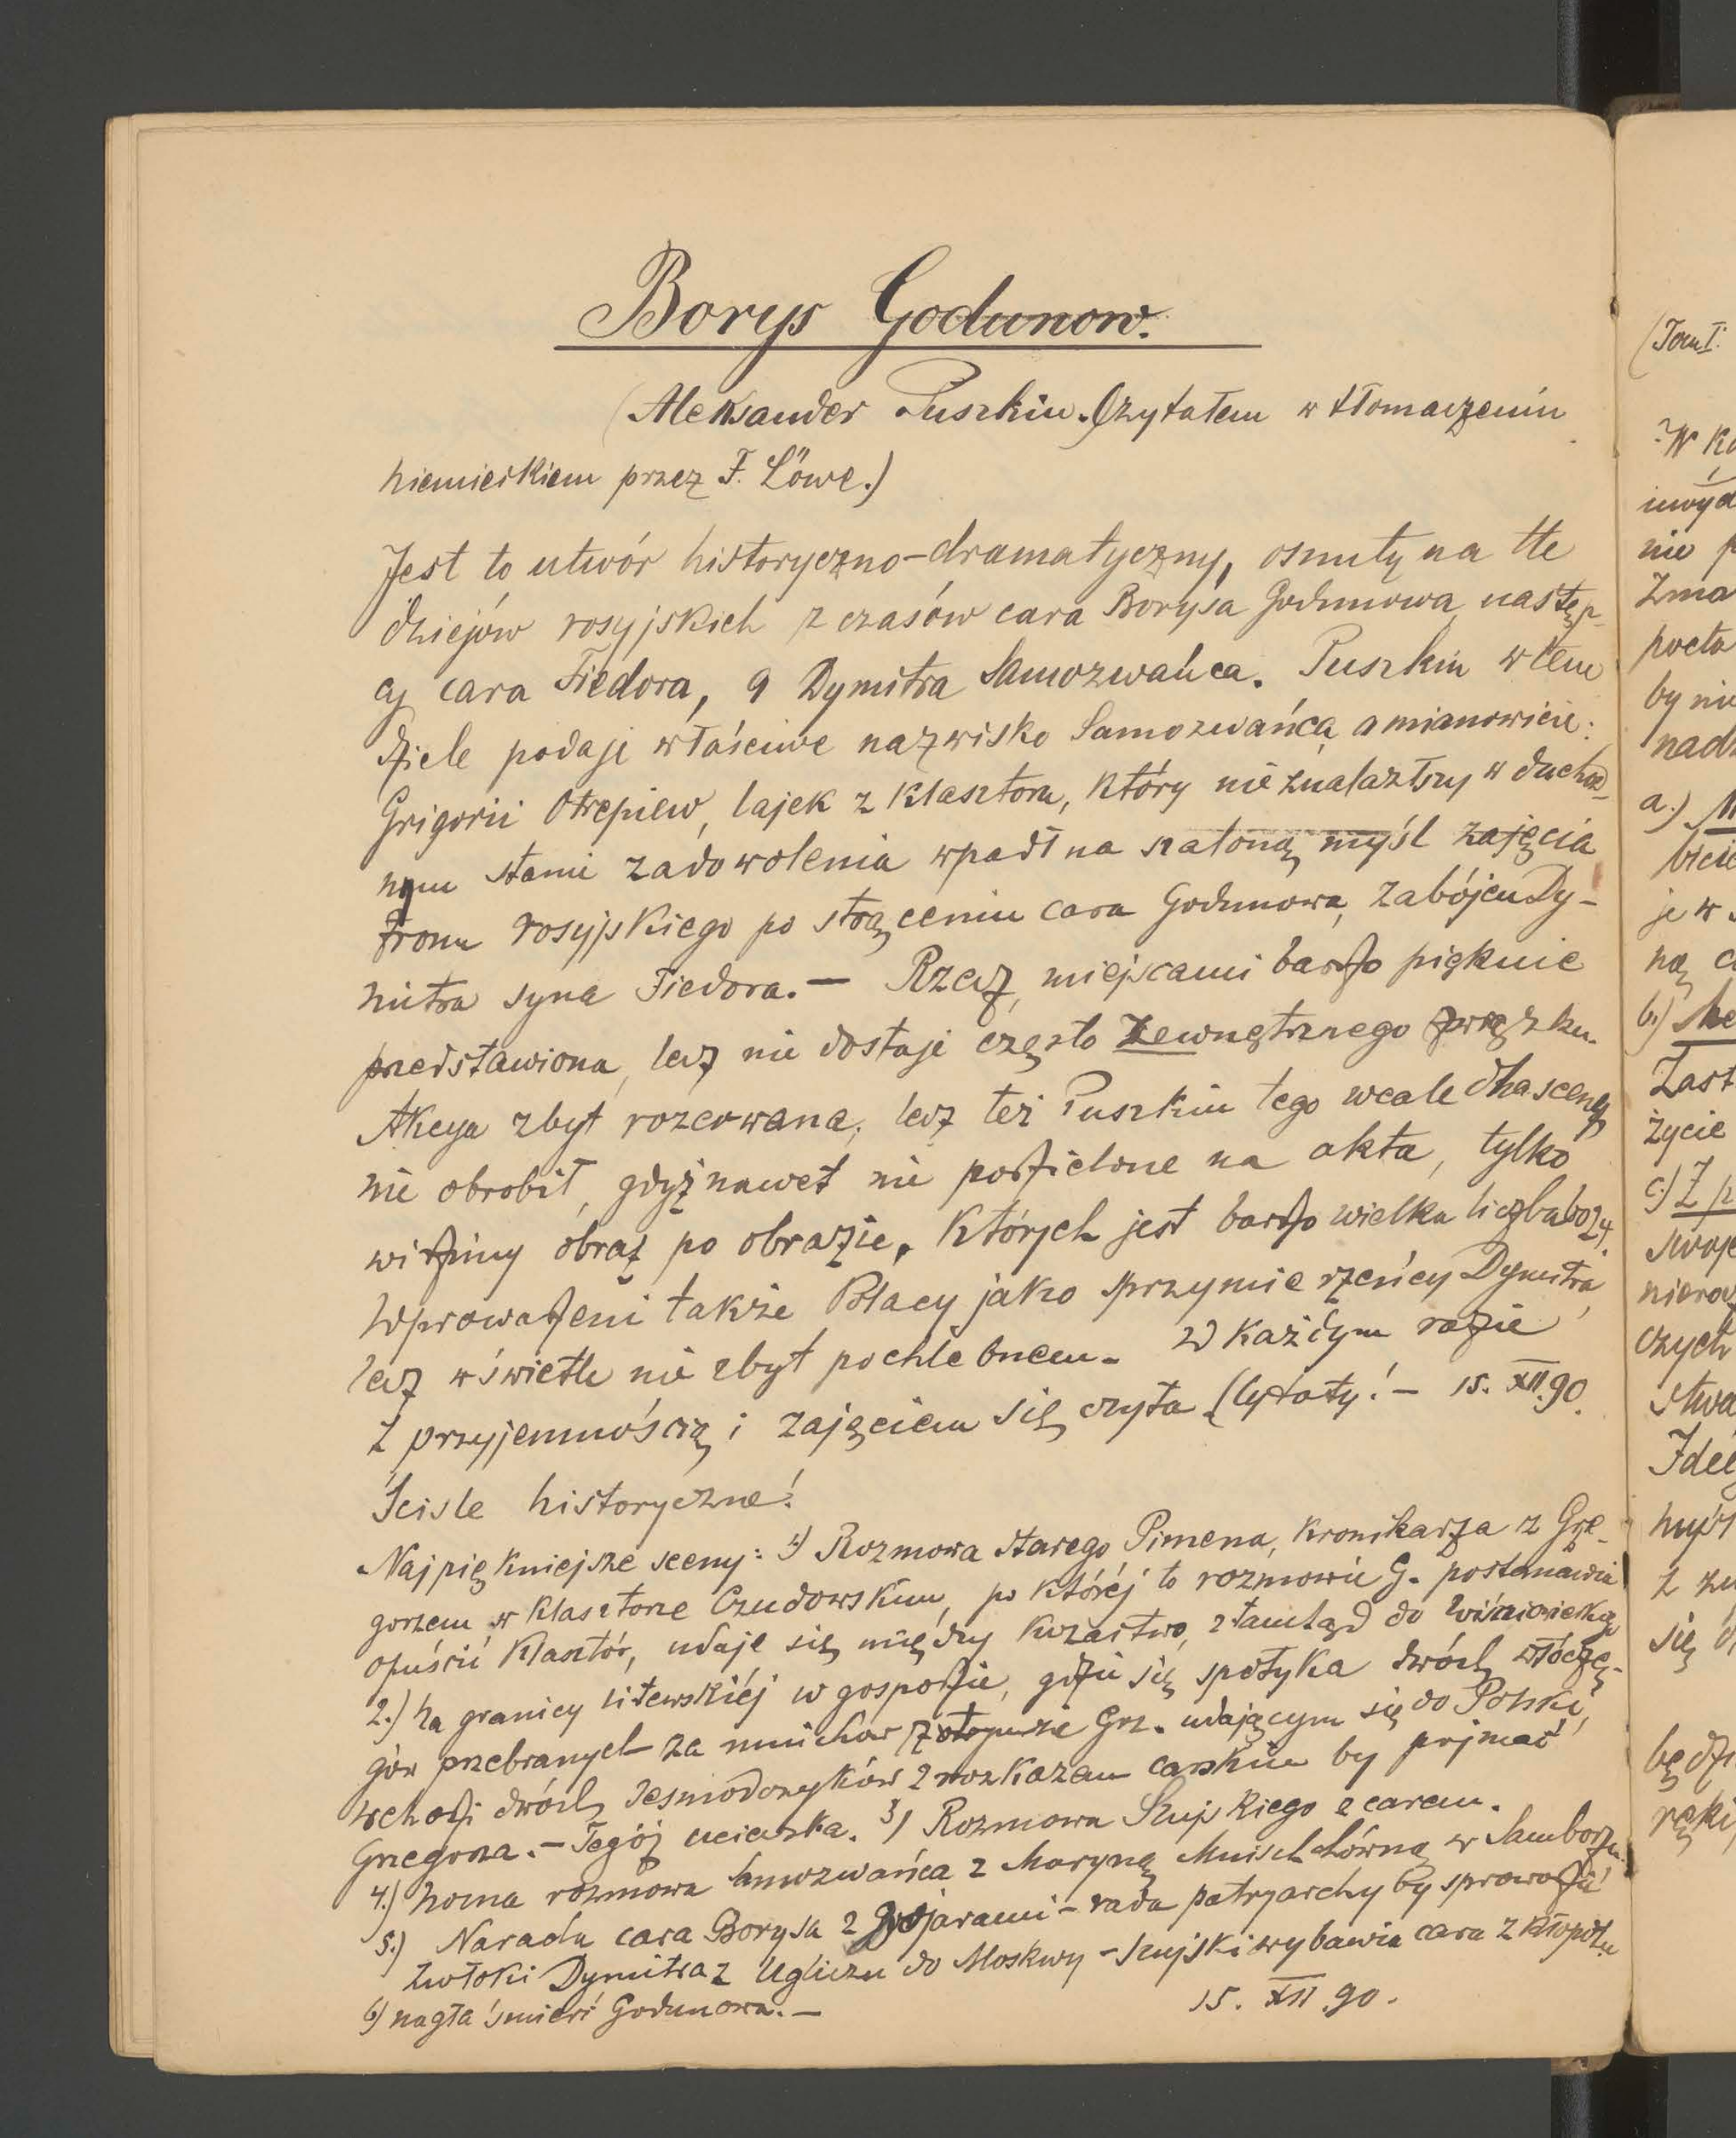 Borys Godunow.
(Aleksander Puszkin. Czytałem w tłomaczeniu
niemieckiem przez F. Löwe.)
Jest to utwór historyczno-dramatyczny, osnuty na tle
dziejów rosyjskich z czasów cara Borysa Godunowa, następ-
cy cara Fiedora, a Dymitra Samozwańca. Puszkin w tem
dziele podaje właściwe nazwisko Samozwańca, a mianowicie:
Grigorii Otrepiew, lajek z klasztoru, który nie znalazłszy w duchow-
nym stanie zadowolenia wpadł na szaloną myśl zajęcia
tronu rosyjskiego po strąceniu cara Godunowa, zabójcu Dy-
mitra syna Fiedora. — Rzecz, miejscami bardzo pięknie
przedstawiona, lecz nie dostaje często zewnętrznego związku.
Akcya zbyt rozerwana, lecz też Puszkin tego wcale dla sceny
nie obrobił, gdyż nawet nie podzielone na akta, tylko
widzimy obraz po obrazie, których jest bardzo wielka liczba bo 24.
Wprowadzeni także Polacy jako sprzymierzeńcy Dymitra,
lecz w świetle nie zbyt pochlebnem. W każdym razie
z przyjemnością i zajęciem się czyta (Cytaty! — 15. XII. 90.
Ściśle historyczne!
Najpiękniejsze sceny: 1) Rozmowa starego Pimena, kronikarza z Grze-
gorzem w klasztorze Czudowskim, po której to rozmowie G. postanawia
opuścić klasztór, udaje się między kozactwo, ztamtąd do Wiśniowieckiego
2.) Na granicy litewskiéj w gospodzie, gdzie się spotyka dwóch włóczę-
gów przebranych za mnichów z Grz. udającym się do Polski,
wchodzi dwóch z rozkazem carskim by pojmać
Grzegorza. — Tegóż ucieczka. 3) Rozmowa Szujskiego z carem.
4.) Nocna rozmowa Samozwańca z Maryną Mnischówną w Samborze.
5.) Narada cara Borysa z Bojarami — rada patryarchy by sprowadzić
zwłoki Dymitra z Ugliczu do Moskwy — Szujski wybawia cara z kłopotu
6) nagła śmierć Godunowa. — 15. XII 90.
(Tom I.